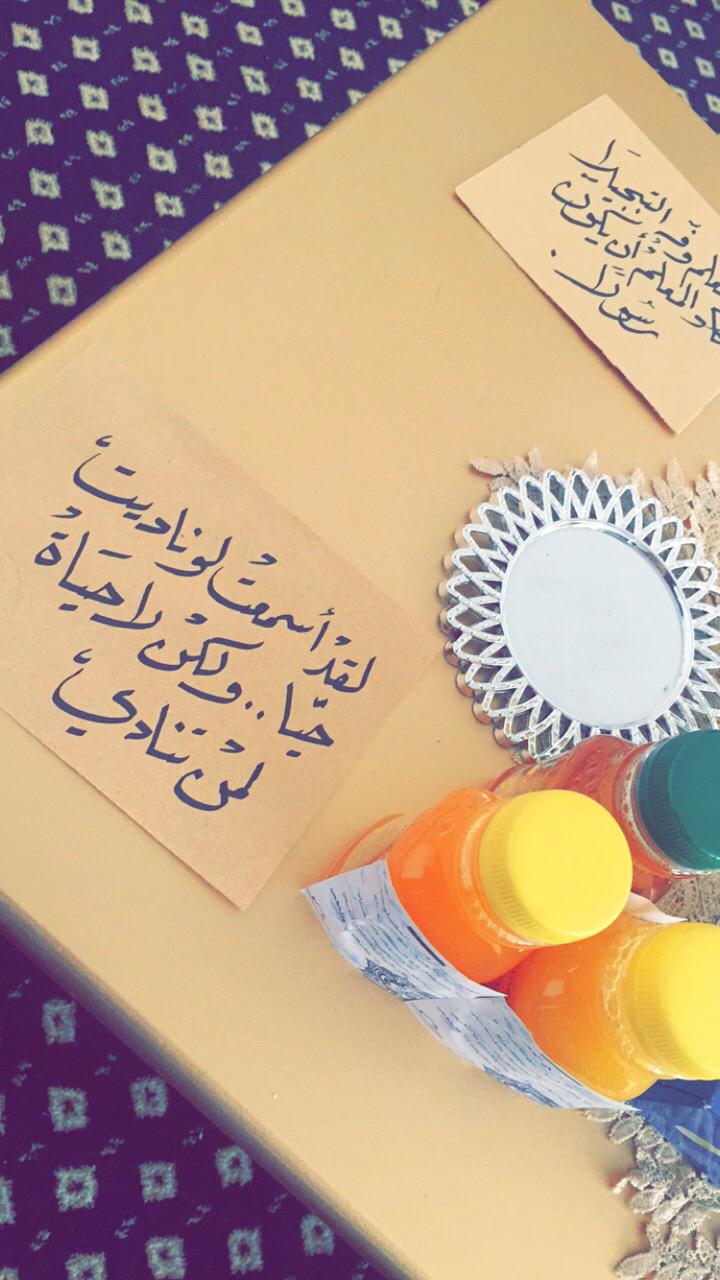 لقدْ أسمعتُ لو ناديتَ
حيّا.. ولكنْ لا حَيَاةُ
لمنْ تنادي
وفِّهِ التبجيلَا
المعلم أن يكون
رسُولًا.